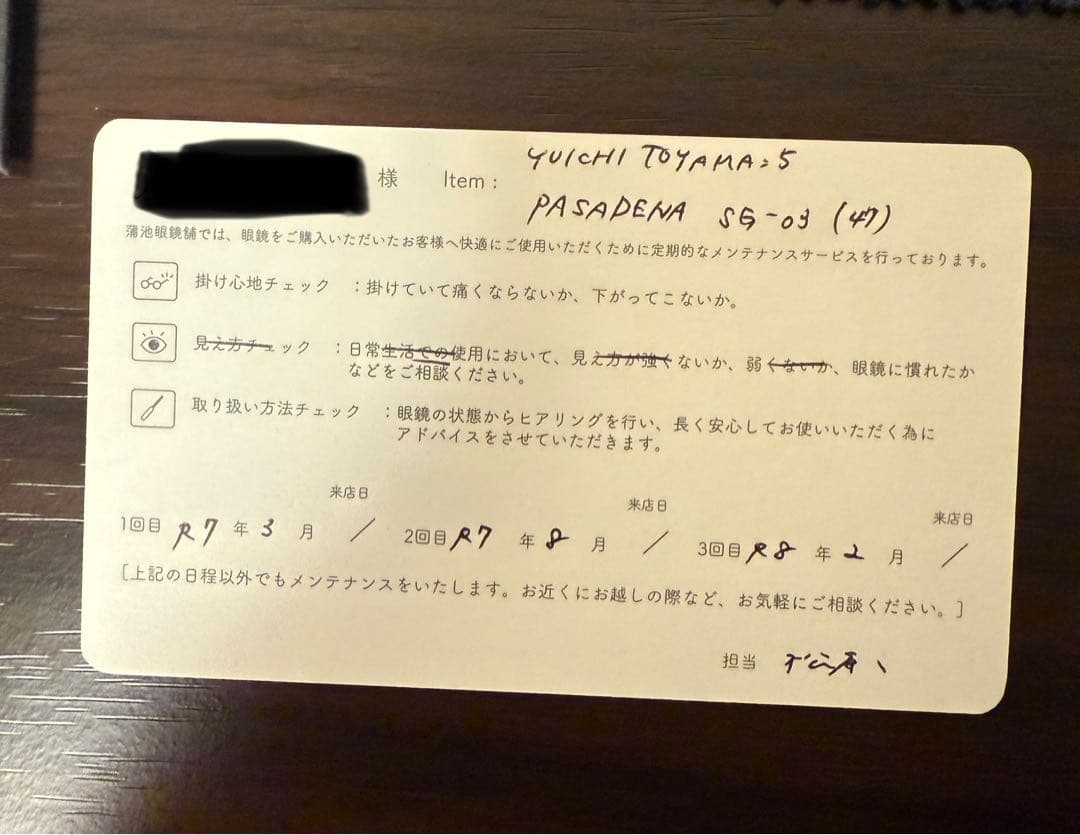 様 Item : YUICHI TOYAMA:5
PASADENA SG-03 (47)
蒲池眼鏡舗では、眼鏡をご購入いただいたお客様へ快適にご使用いただくために定期的なメンテナンスサービスを行っております。
掛け心地チェック ：掛けていて痛くならないか、下がってこないか。
見え方チェック ：日常生活での使用において、見え方が強くないか、弱くないか、眼鏡に慣れたか
などをご相談ください。
取り扱い方法チェック ：眼鏡の状態からヒアリングを行い、長く安心してお使いいただく為に
アドバイスをさせていただきます。
来店日 来店日 来店日
1回目 R7 年 3 月 / 2回目 R7 年 8 月 / 3回目 R8 年 2 月 /
[上記の日程以外でもメンテナンスをいたします。お近くにお越しの際など、お気軽にご相談ください。]
担当